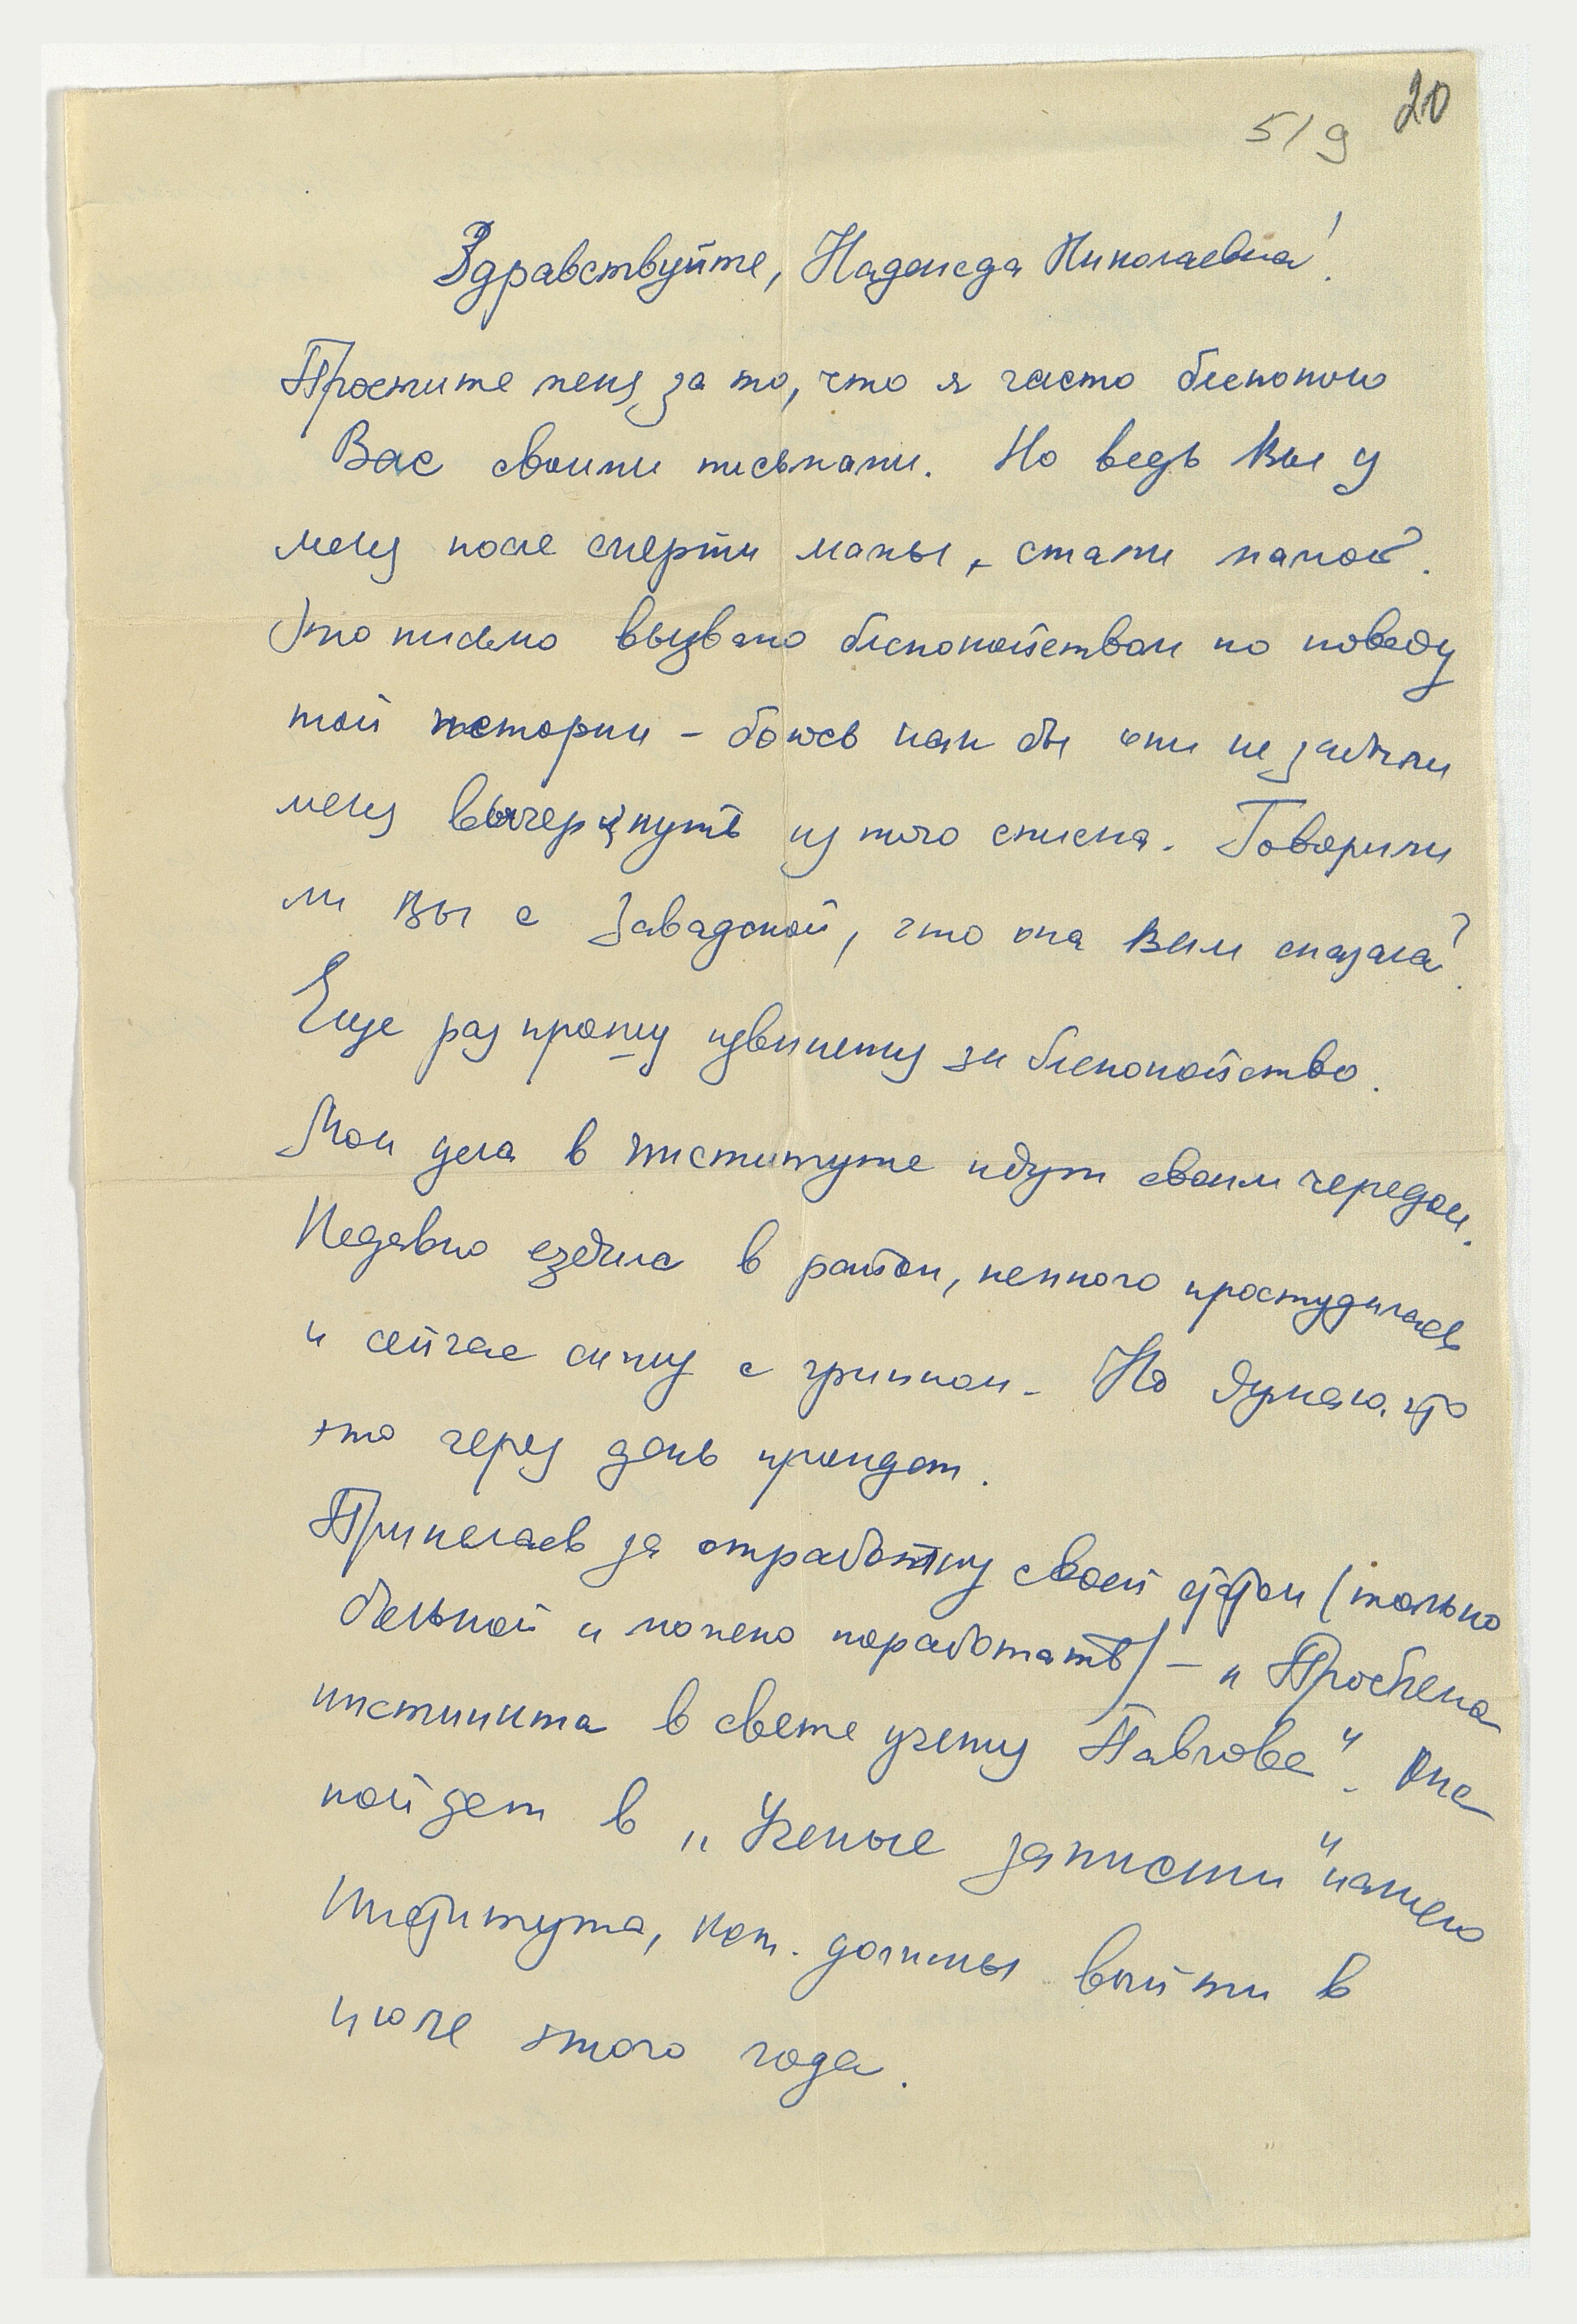 20
5/9
Здравствуйте, Надежда Николаевна!
Простите меня за то, что я часто беспокою
Вас своими письмами. Но ведь Вы у
меня после смерти мамы, стали мамой.
Это письмо вызвано беспокойством по поводу
той истории - боюсь как бы они не забыли
меня вычеркнуть из того списка. Говорили
ли Вы с Завадской, что она Вам сказала?
Еще раз прошу извинения за беспокойство.
Мои дела в институте идут своим чередом.
Недавно ездила в район, немного простудилась
и сейчас сижу с гриппом. Но думаю, что
это через день пройдет.
Принялась за отработку своей статьи (только
больной и можно поработать) - "Проблема
инстинкта в свете учения Павлова". Она
пойдет в "Ученые записки" нашего
Института, кот. должны выйти в
июле этого года.